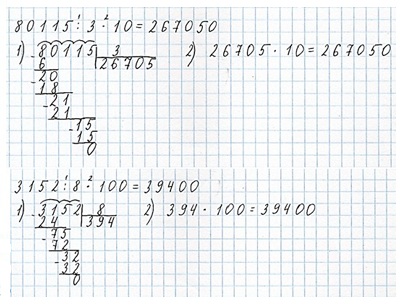 80115 : 3 · 10 = 267050
1) 80115 | 3
- 6 | 26705
20
- 18
21
- 21
15
- 15
0
2) 26705 · 10 = 267050
3152 : 8 · 100 = 39400
1) 3152 | 8
- 24 | 394
75
- 72
32
- 32
0
2) 394 · 100 = 39400